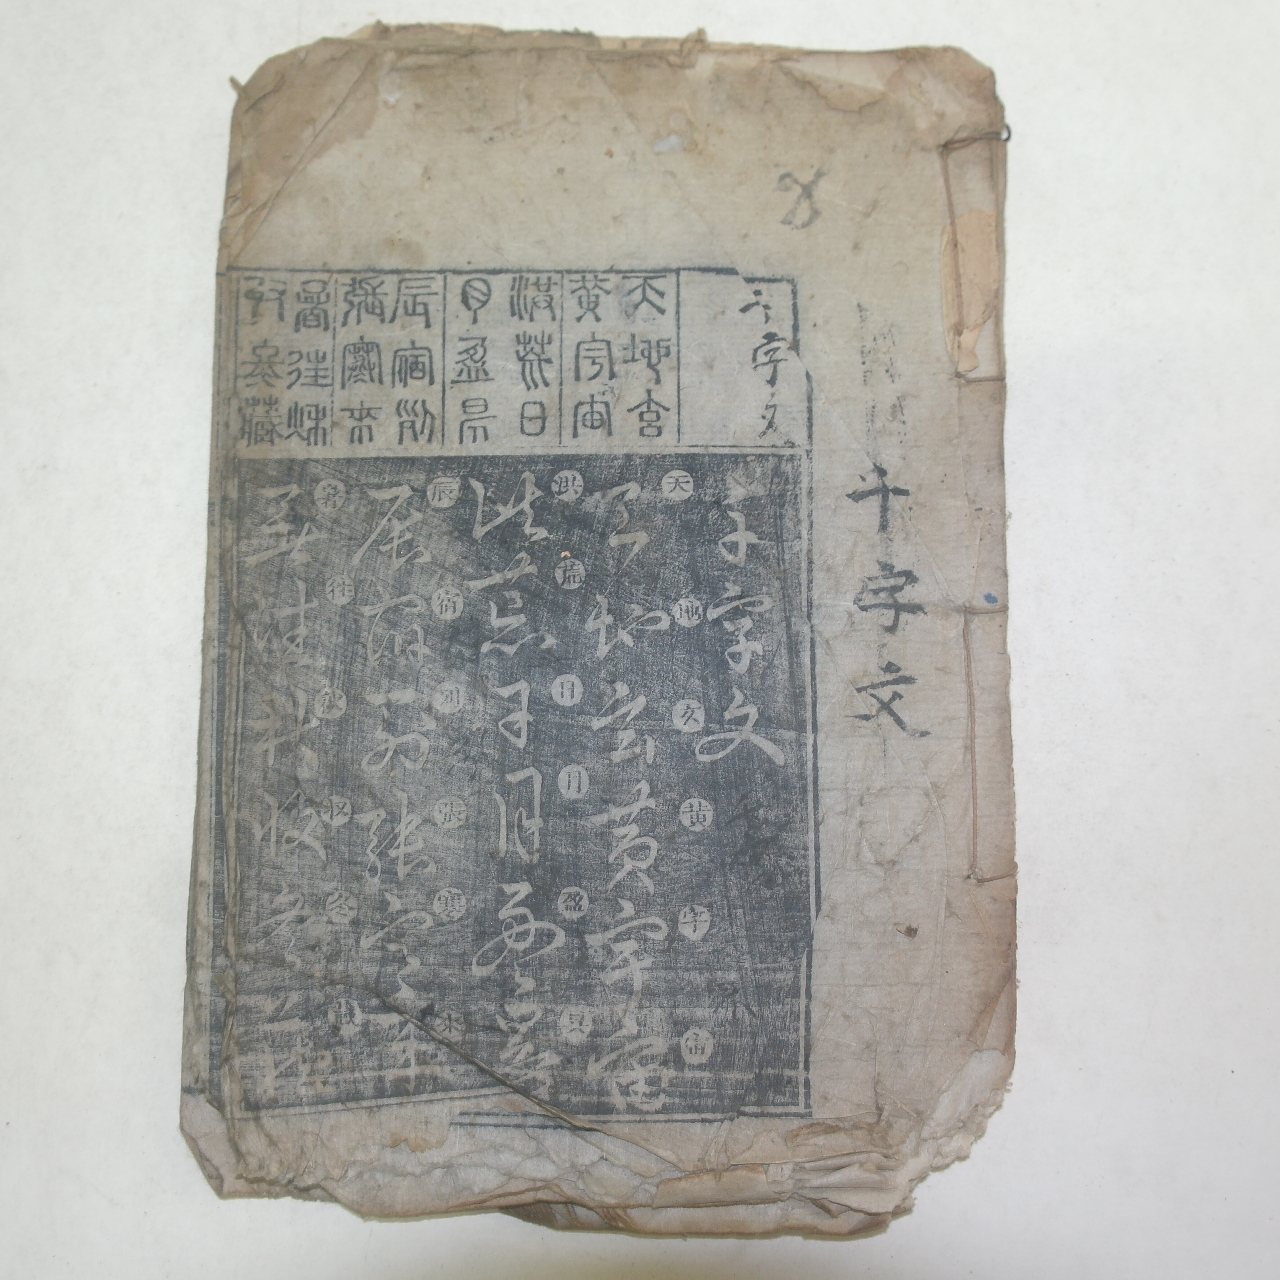 千字文
千字文
天地玄
黃宇宙
洪荒日
月盈昃
辰宿列
張寒來
暑往秋
收冬藏
千字文
天地玄黃宇宙
天地玄黃宇宙
洪荒日月盈昃
洪荒日月盈昃
辰宿列張寒來
辰宿列張寒來
暑往秋收冬藏
暑往秋收冬藏